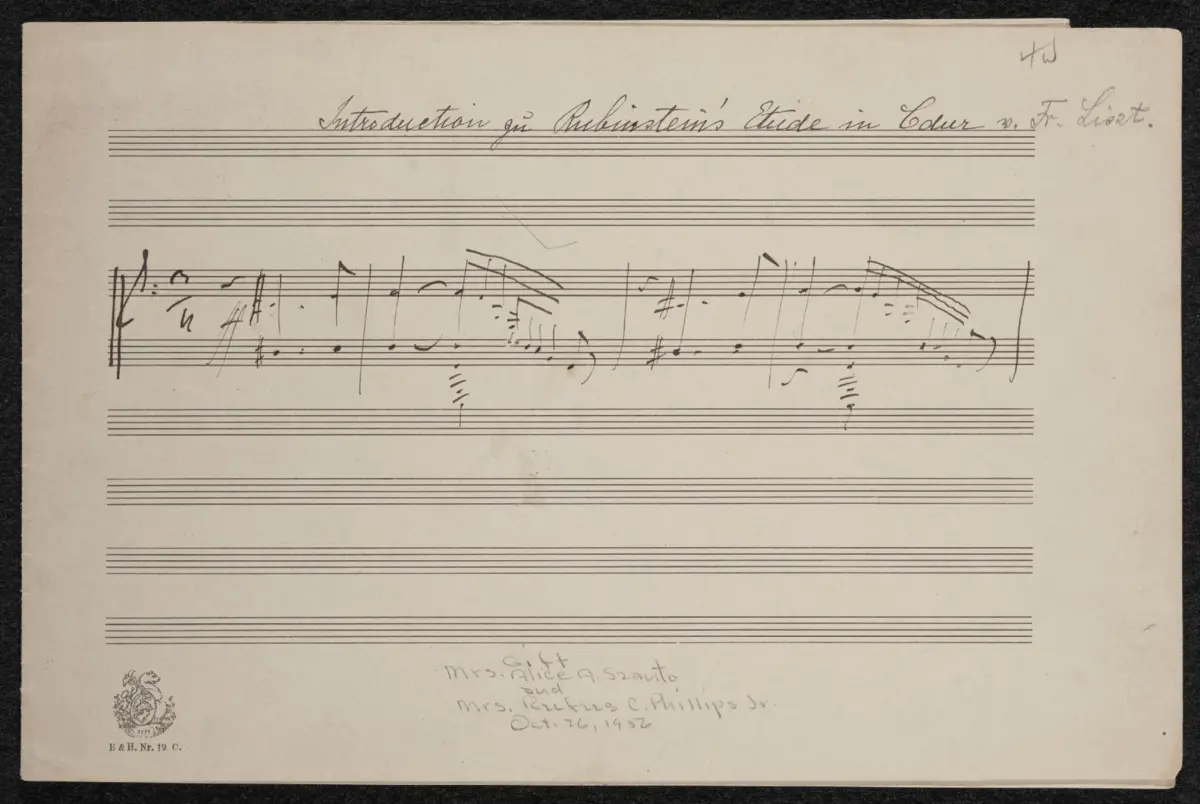 Introduction zu Rubinstein's Etude in Cdur v. Fr. Liszt.
Gift
Mrs. Alice A. Szanto
and
Mrs. Rufus C. Phillips Jr.
Oct. 26, 1952
E & H. Nr. 19 C.